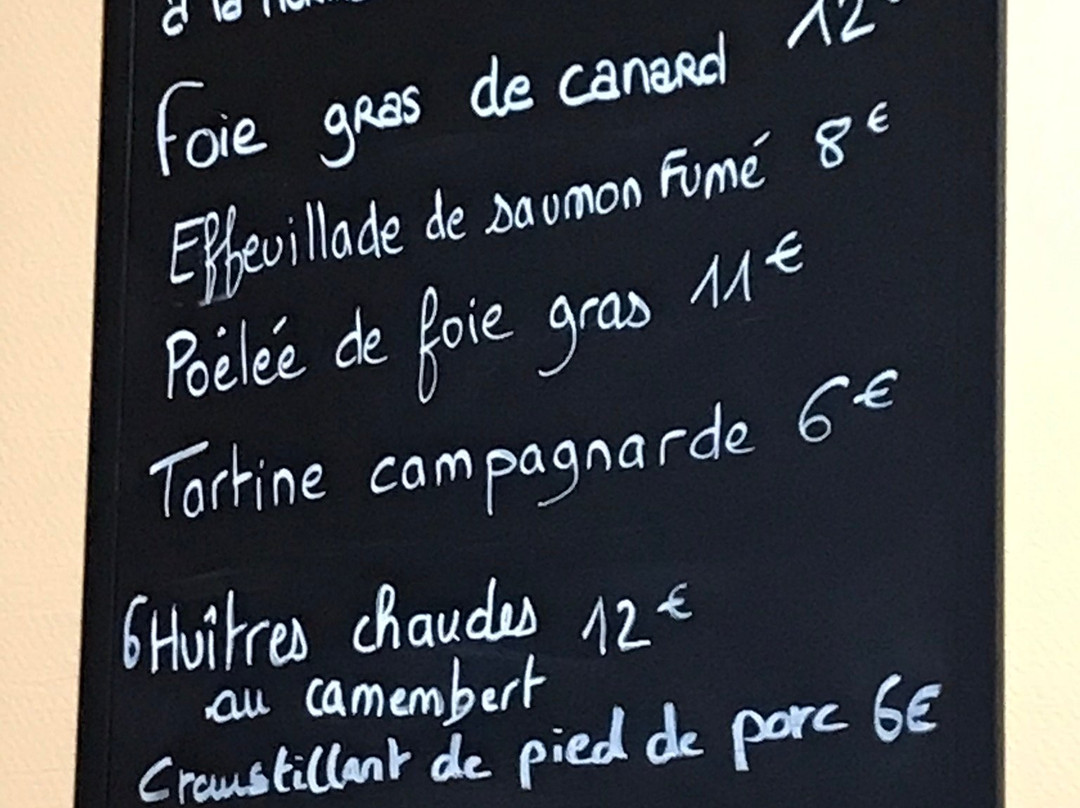 à la
Foie gras de canard 12
Effeuillade de saumon Fumé 8€
Poêlée de foie gras 11€
Tartine campagnarde 6€
6 Huîtres chaudes 12€
au camembert
Croustillant de pied de porc 6€